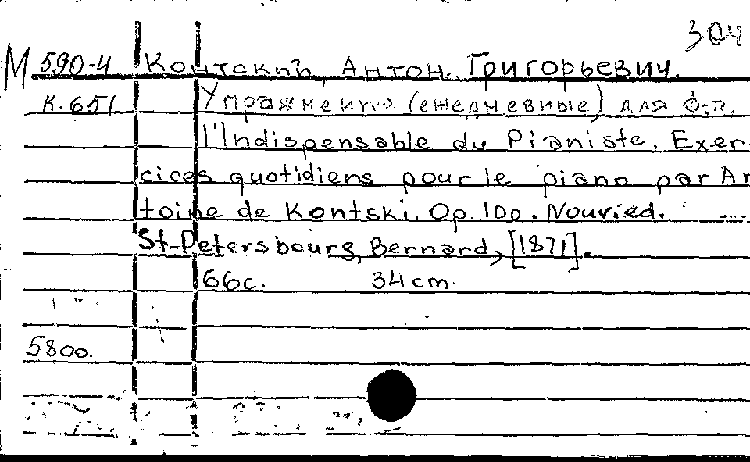 304
М 590-4 Контский, Антон Григорьевич.
К.651 Упражнения (ежедневные) для ф-п.
l'Indispensable du Pianiste. Exer-
cices quotidiens pour le piano par An
toine de Kontski. Op. 100. Nouv.ed.
St-Petersbourg, Bernard, [1871].
66с. 34 cm.
5800.